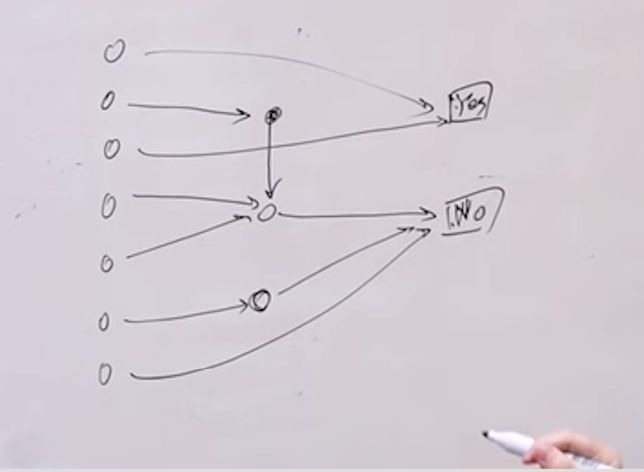 Yes
No